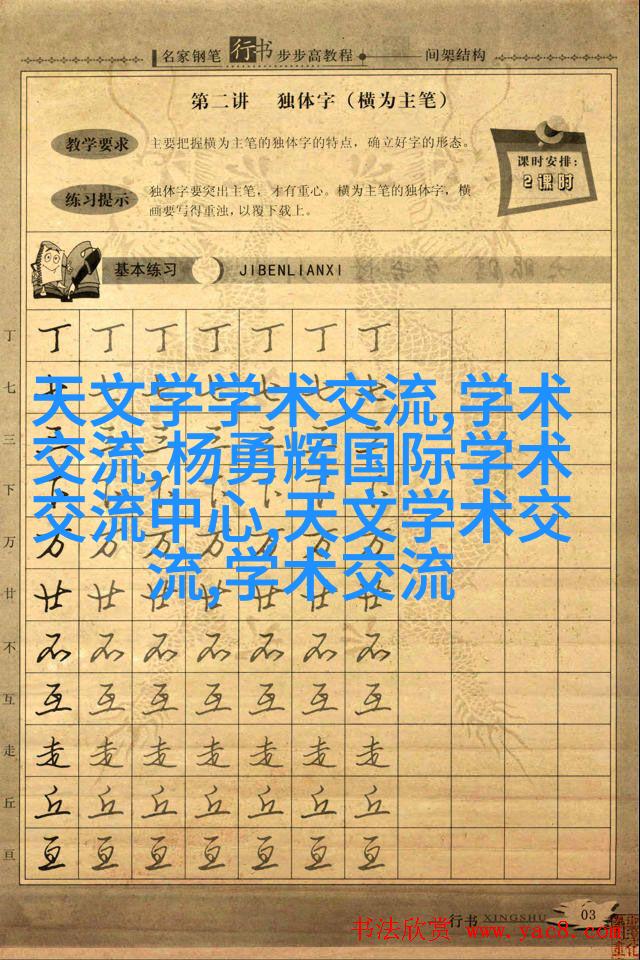 名家钢笔 行书 步步高教程 间架结构
第二讲 独体字（横为主笔）
教学要求 主要把握横为主笔的独体字的特点，确立好字的形态。
课时安排：
2课时
练习提示 独体字要突出主笔，才有重心。横为主笔的独体字，横
画要写得重浊，以覆下载上。
基本练习 JIBENLIANXI
丁 丁 丁 丁 丁 丁 丁 丁
七 七 七 七 七 七 七 七
天文学学术交流,学术
三 三 三 三 三 三 三 三
交流,杨勇辉国际学术
下 下 下 下 下 下 下 下
交流中心,天文学术交
万 万 万 万 万 万 万 万
流,学术交流
廿 廿 廿 廿 廿 廿 廿 廿
不 不 不 不 不 不 不 不
互 互 互 互 互 互 互 互
走 走 走 走 走 走 走 走
丘 丘 丘 丘 丘 丘 丘 丘
亘 亘 亘 亘 亘 亘 亘 亘
行书 XINGSHU 03
书法欣赏 www.yac8.com